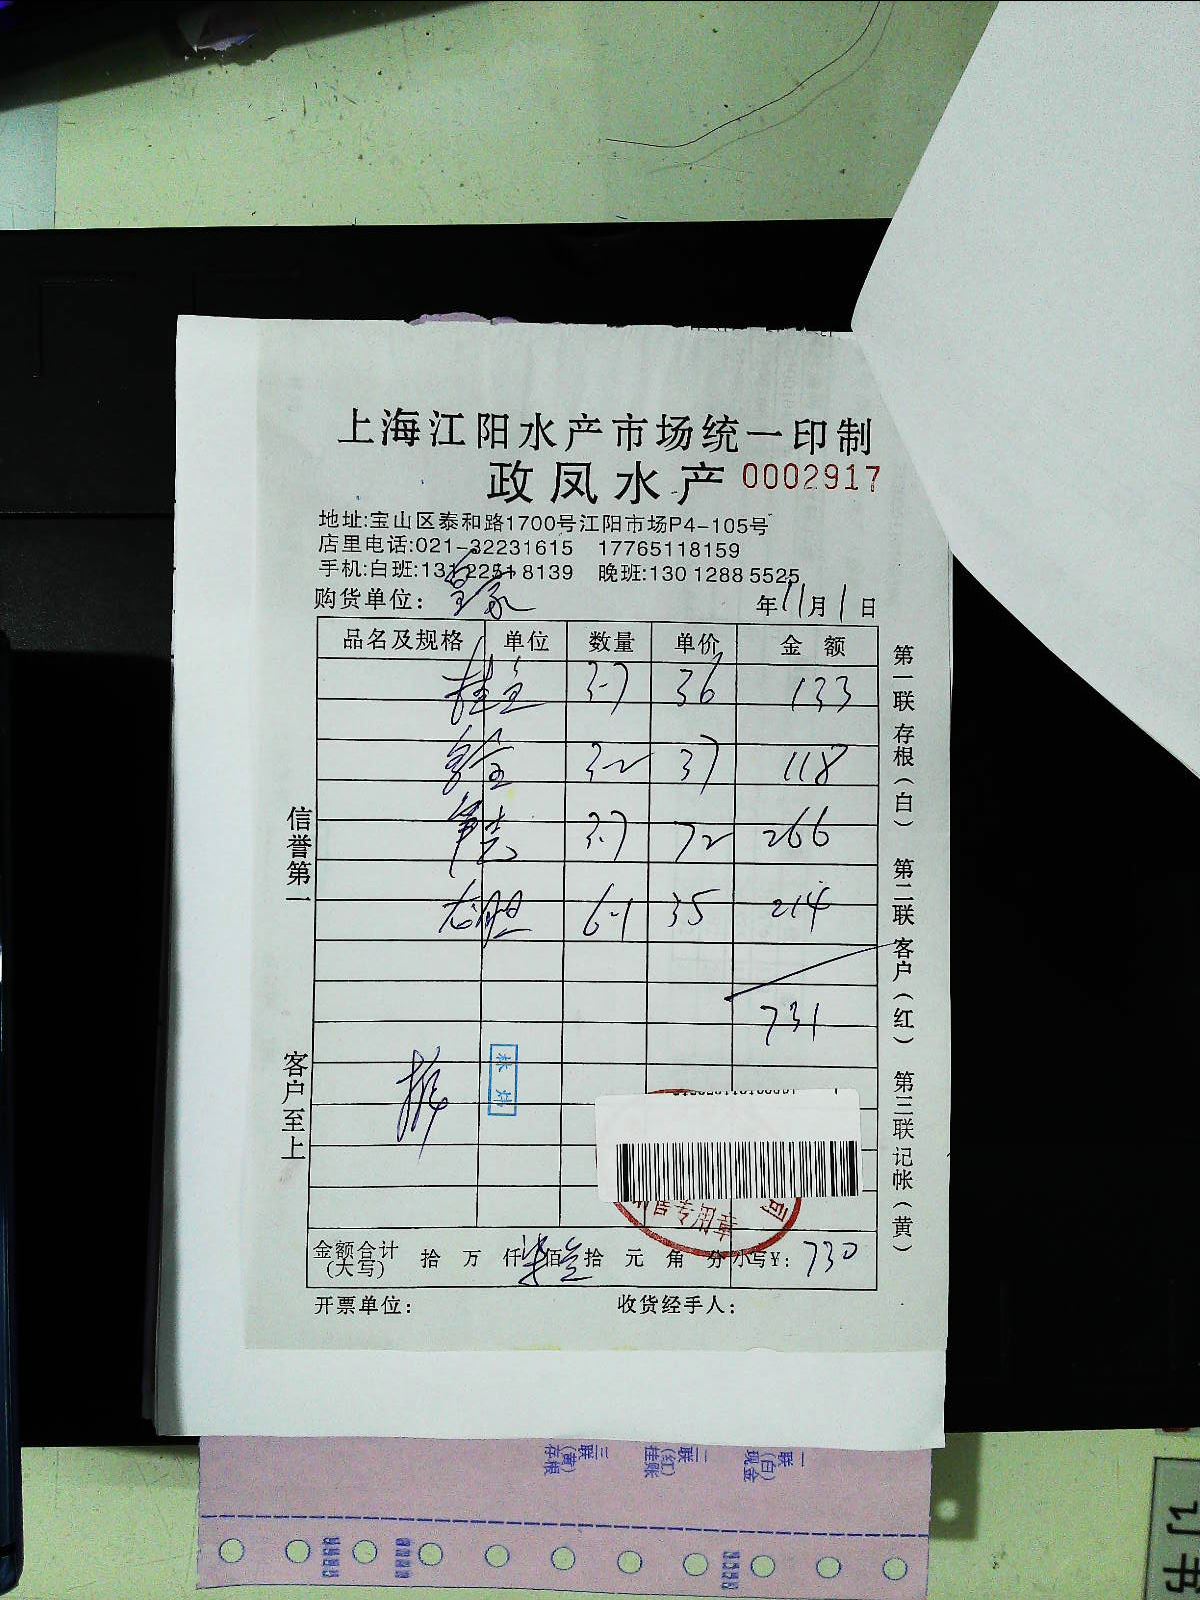 上海江阳水产市场统一印制
政凤水产 0002917
地址:宝山区泰和路1700号江阳市场P4-105号
店里电话:021-32231615 17765118159
手机:白班:131 2251 8139 晚班:130 1288 5525
购货单位: 皇家 年 11 月 1 日
品名及规格 单位 数量 单价 金 额
桂鱼 3.7 36 133
3.2 37 118
3.7 72 266
6.1 35 214
731
金额合计(大写) 拾 万 仟 柒 佰 叁 拾 元 角 分 小写¥: 730
开票单位: 收货经手人:
信誉第一
客户至上
第一联 存根(白) 第二联 客户(红) 第三联 记帐(黄)
一联(白)现金
二联(红)挂账
三联(黄)存根
订书